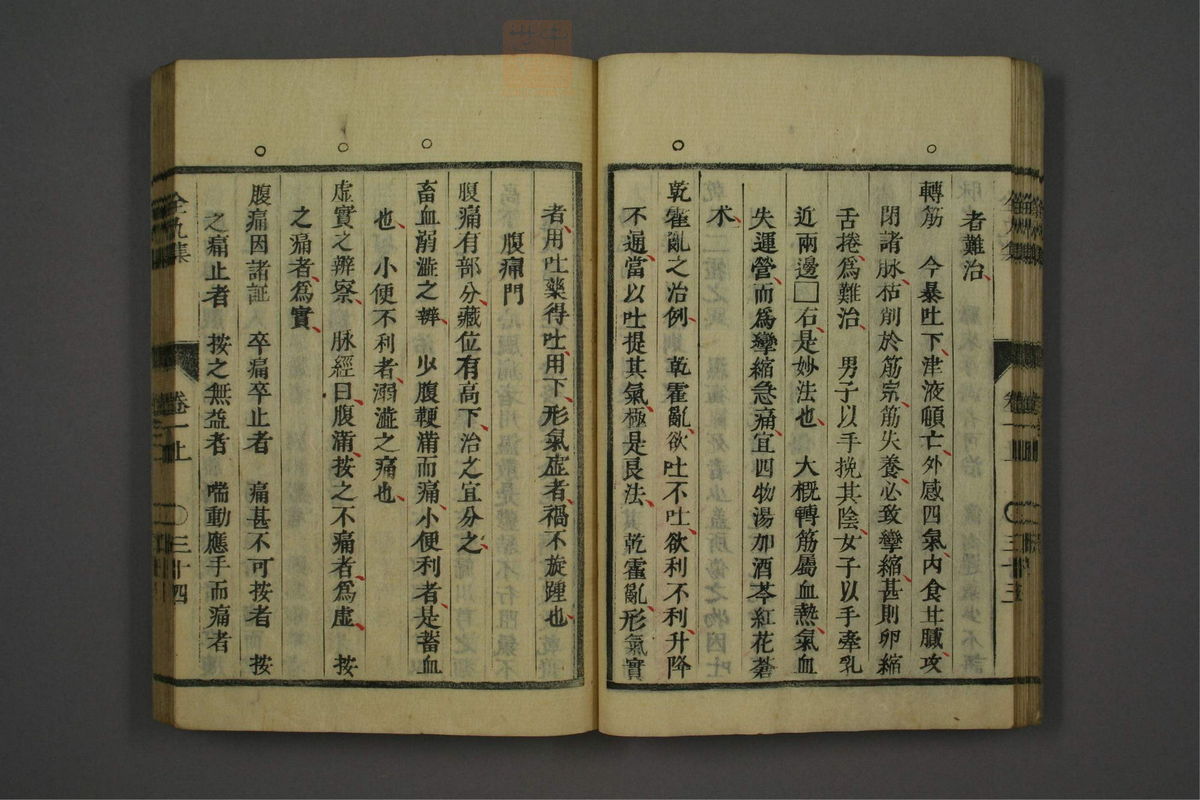 者難治
轉筋　今暴吐下津液頓亡外感四氣內食甘膩攻
閉諸脉枯削於筋宗筋失養必致攣縮甚則卵縮
舌捲爲難治　男子以手挽其陰女子以手牽乳
近兩邊□石是妙法也　大概轉筋屬血熱氣血
失運營而爲攣縮急痛宜四物湯加酒芩紅花蒼
术
乾霍亂之冶例　乾霍亂欲吐不吐欲利不利升降
不通當以吐提其氣極是良法　乾霍亂形氣實
者用吐藥得吐用下形氣虛者禍不旋踵也
腹痛門
腹痛有部分藏位有高下治之宜分之
畜血溺澁之辨　少腹鞕滿而痛小便利者是蓄血
也　小便不利者溺澁之痛也
虛實之辨察　脉經曰腹滿按之不痛者爲虛　按
之痛者爲實
腹痛因諸証　卒痛卒止者　痛甚不可按者　按
之痛止者　按之無益者　喘動應手而痛者
全九集
卷一上
三十四
卷一上
三十三